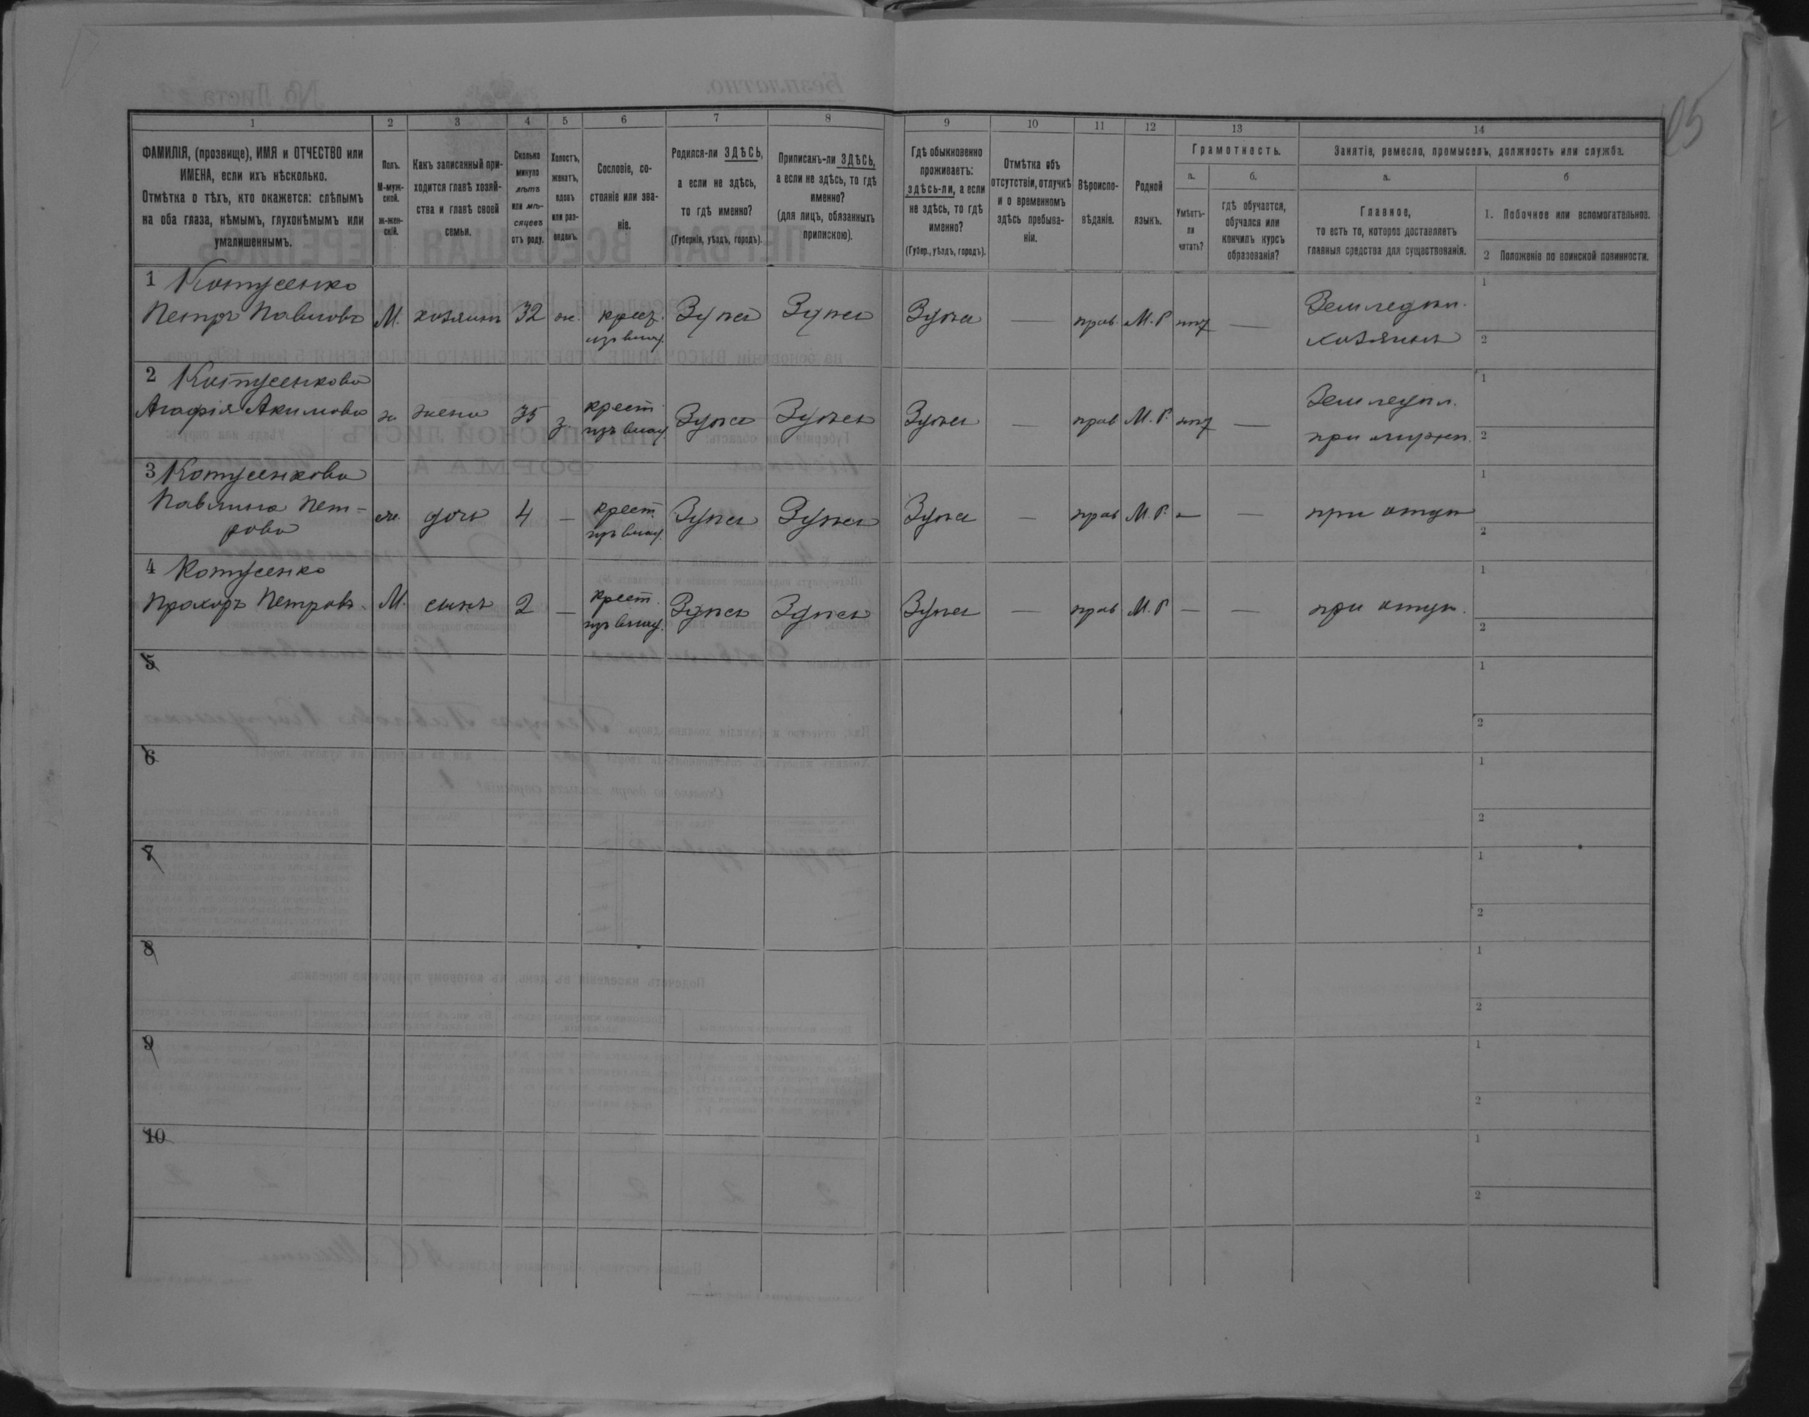 1 2 3 4 5 6 7 8 9 10 11 12 13 14
ФАМИЛІЯ, (прозвище), ИМЯ и ОТЧЕСТВО или
ИМЕНА, если ихъ нѣсколько.
Отмѣтка о тѣхъ, кто окажется: слѣпымъ
на оба глаза, нѣмымъ, глухонѣмымъ или
умалишеннымъ.
Полъ.
М-муж-
ской.
ж-жен-
скій.
Какъ записанный при-
ходится главѣ хозяй-
ства и главѣ своей
семьи.
Сколько
минуло
лѣтъ
или мѣ-
сяцевъ
отъ роду.
Холостъ,
женатъ,
вдовъ
или раз-
веденъ.
Сословіе, со-
стояніе или зва-
ніе.
Родился-ли ЗДѢСЬ,
а если не здѣсь,
то гдѣ именно?
(Губернія, уѣздъ, городъ).
Приписанъ-ли ЗДѢСЬ,
а если не здѣсь, то гдѣ
именно?
(для лицъ, обязанныхъ
припискою).
Гдѣ обыкновенно
проживаетъ:
здѣсь-ли, а если
не здѣсь, то гдѣ
именно?
(Губер., уѣздъ, городъ).
Отмѣтка объ
отсутствіи, отлучкѣ
и о временномъ
здѣсь пребыва-
ніи.
Вѣроиспо-
вѣданіе.
Родной
языкъ.
Грамотность.
а.
Умѣетъ-
ли
читать?
б.
гдѣ обучается,
обучался или
кончилъ курсъ
образованія?
Занятіе, ремесло, промыселъ, должность или служба.
а.
Главное,
то есть то, которое доставляетъ
главныя средства для существованія.
б
1. Побочное или вспомогательное.
2 Положеніе по воинской повинности.
1 Котусенко
Петръ Павловъ М. хозяинъ 32 ж. крест. Здѣсь Здѣсь Здѣсь — прав. М.Р. —
Земледѣл.
хозяинъ
1
2
2 Котусенкова
Агафія Акимова ж жена 35 з крест. Здѣсь Здѣсь Здѣсь — прав М.Р. —
Земледѣл.
при мужѣ
1
2
3 Котусенкова
Павлина Пет-
рова
ж. дочь 4 — крест. Здѣсь Здѣсь Здѣсь — прав М.Р. — — при отцѣ
1
2
4 Котусенко
Прохоръ Петровъ. М. сынъ 2 — крест. Здѣсь Здѣсь Здѣсь — прав М.Р. — — при отцѣ.
1
2
5
1
2
6
1
2
7
1
2
8
1
2
9
1
2
10
1
2